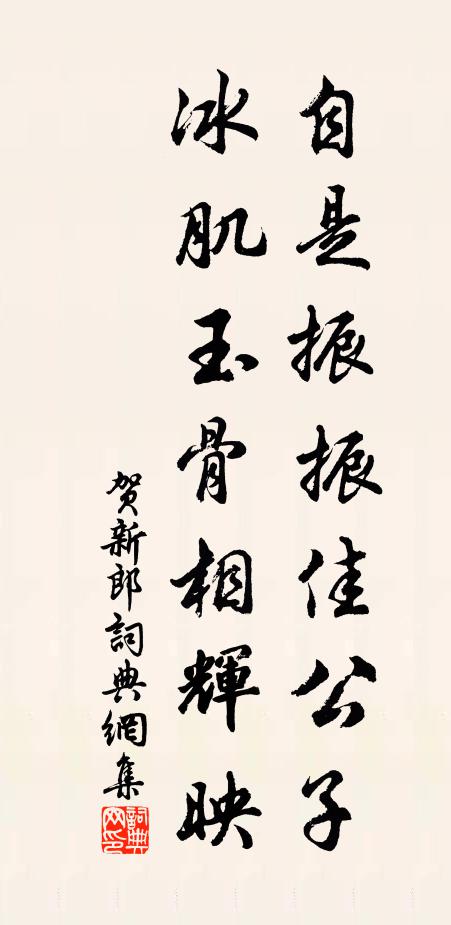 自是振振佳公子
冰肌玉骨相輝映
贺新郎詞典網集
詞典網印